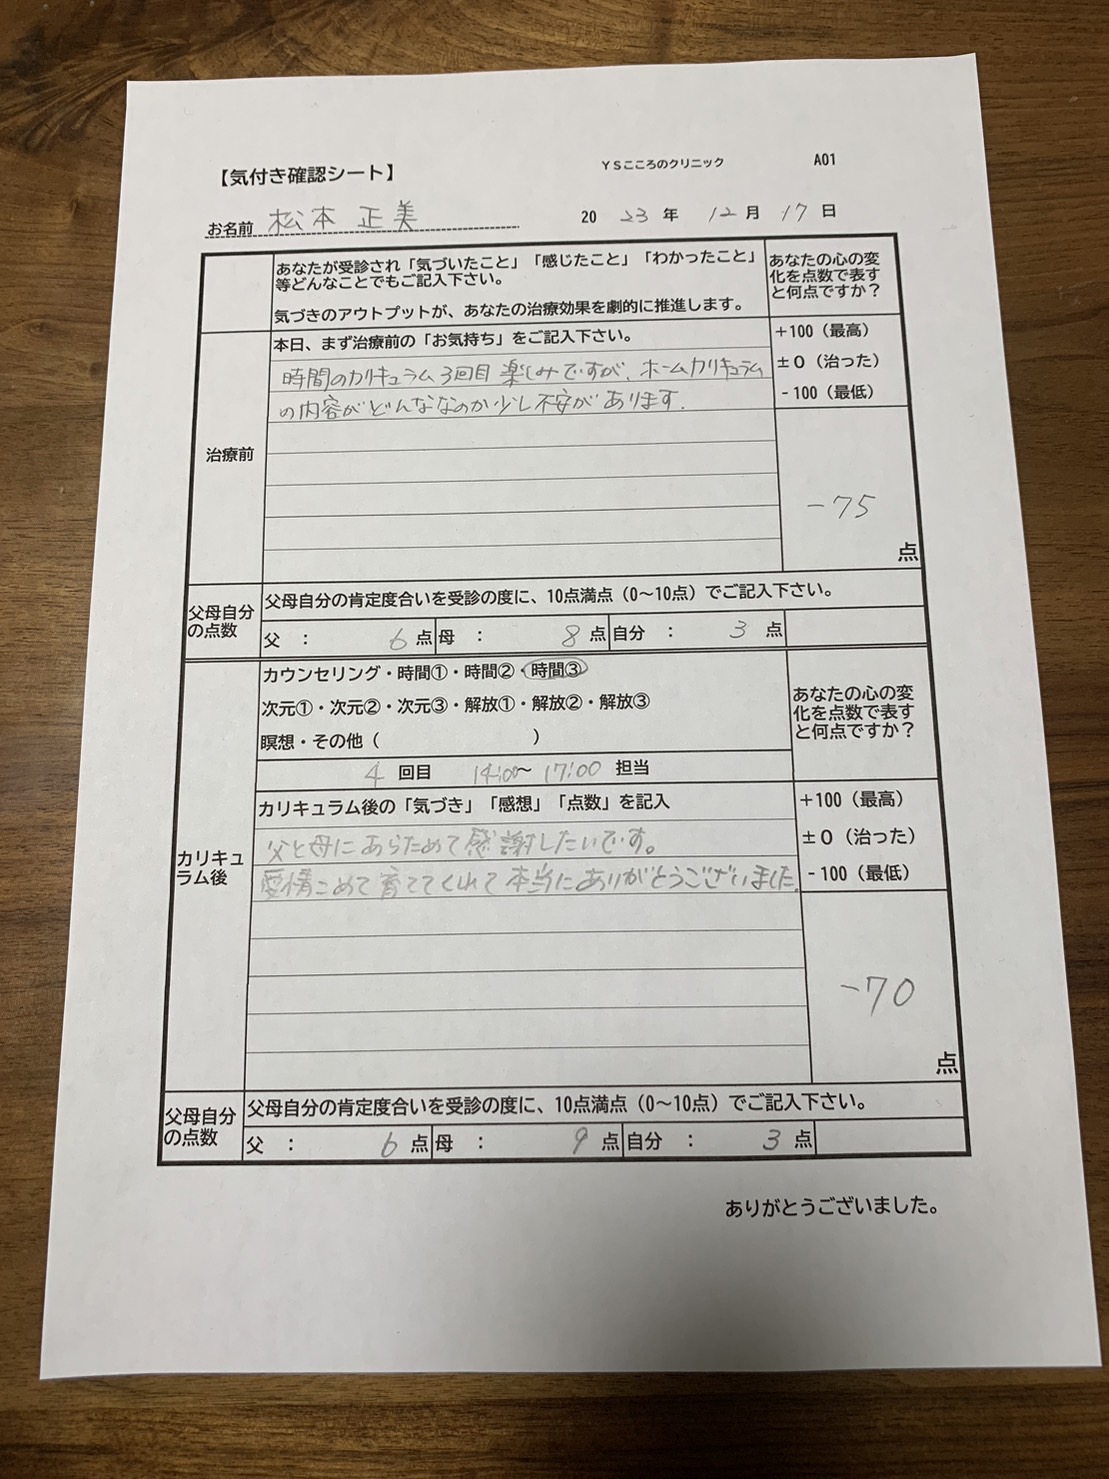 【気付き確認シート】 YSこころのクリニック A01
お名前 松本 正美 20 23 年 12 月 17 日
あなたが受診され「気づいたこと」「感じたこと」「わかったこと」
等どんなことでもご記入下さい。
気づきのアウトプットが、あなたの治療効果を劇的に推進します。
あなたの心の変
化を点数で表す
と何点ですか？
治療前
本日、まず治療前の「お気持ち」をご記入下さい。
時間のカリキュラム3回目 楽しみですが、ホームカリキュラム
の内容がどんななのか少し不安があります.
+100（最高）
±0（治った）
-100（最低）
-75
点
父母自分
の点数
父母自分の肯定度合いを受診の度に、10点満点（0〜10点）でご記入下さい。
父 ： 6 点 母 ： 8 点 自分 ： 3 点
カウンセリング・時間①・時間②・時間③
次元①・次元②・次元③・解放①・解放②・解放③
瞑想・その他（ ）
4 回目 14:00〜 17:00 担当
あなたの心の変
化を点数で表す
と何点ですか？
カリキュ
ラム後
カリキュラム後の「気づき」「感想」「点数」を記入
父と母にあらためて感謝したいです。
愛情こめて育ててくれて本当にありがとうございました.
+100（最高）
±0（治った）
-100（最低）
-70
点
父母自分
の点数
父母自分の肯定度合いを受診の度に、10点満点（0〜10点）でご記入下さい。
父 ： 6 点 母 ： 9 点 自分 ： 3 点
ありがとうございました。